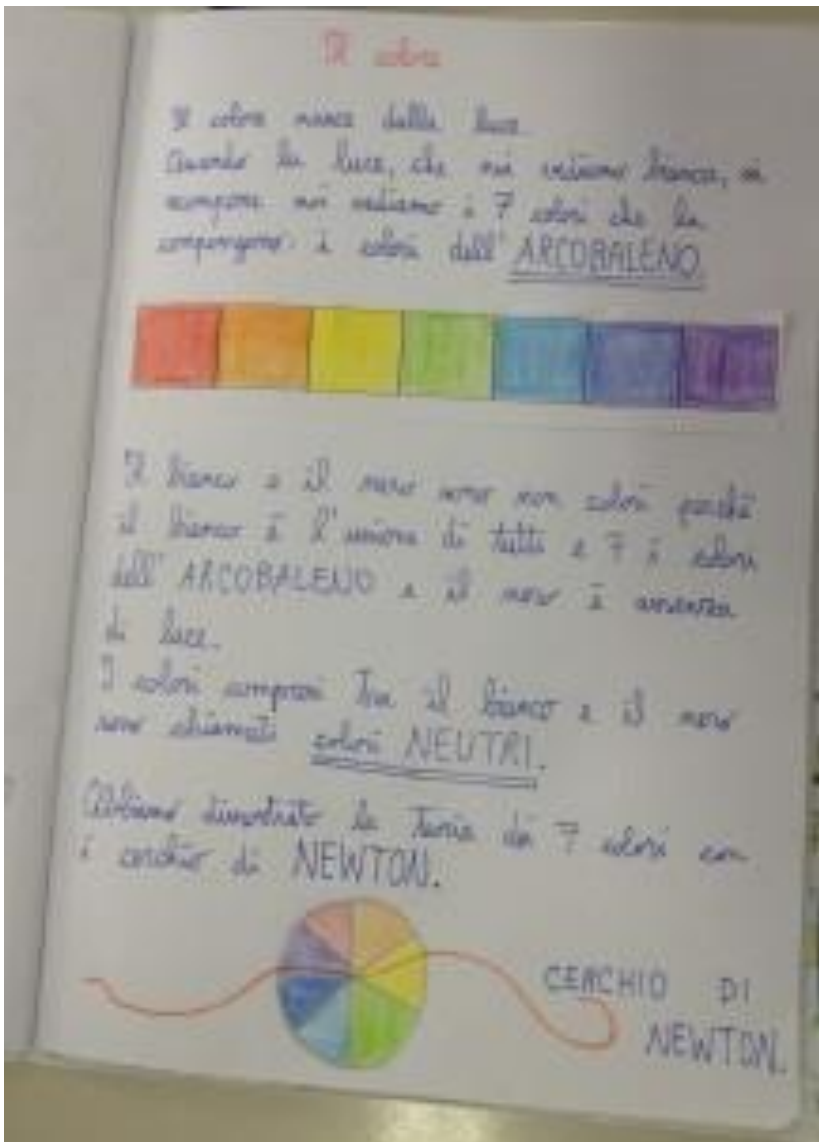 Il colore
Il colore nasce dalla luce.
Quando la luce, che noi vediamo bianca, si
scompone noi vediamo i 7 colori che la
compongono: i colori dell' ARCOBALENO.
Il bianco e il nero sono non colori perché
il bianco è l'unione di tutti e 7 i colori
dell' ARCOBALENO e il nero è assenza
di luce.
I colori compresi tra il bianco e il nero
sono chiamati colori NEUTRI.
Abbiamo dimostrato la teoria dei 7 colori con
i cerchio di NEWTON.
CERCHIO DI
NEWTON.